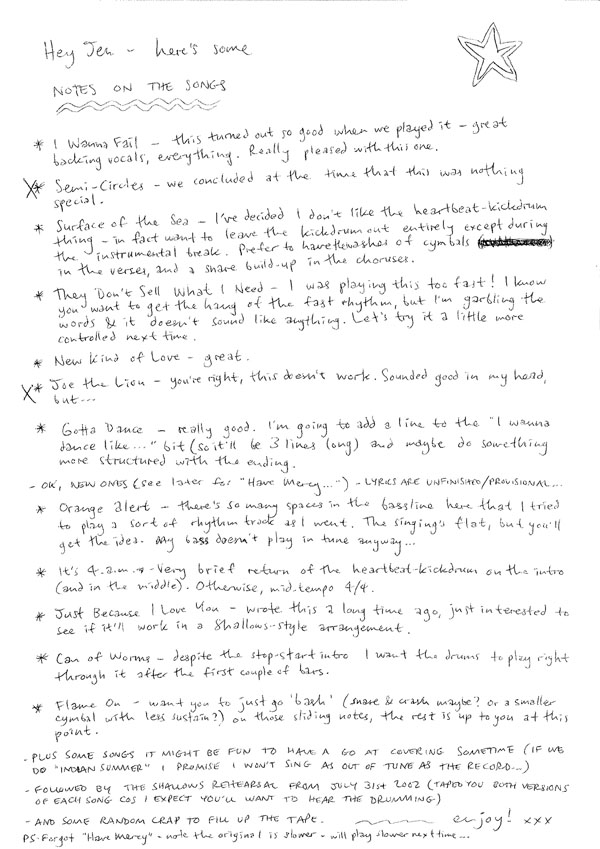 Hey Jen - here's some
NOTES ON THE SONGS
* I Wanna Fail - this turned out so good when we played it - great
backing vocals, everything. Really pleased with this one.
X* Semi-Circles - we concluded at the time that this was nothing
special.
* Surface of the Sea - I've decided I don't like the heartbeat-kickdrum
thing - in fact want to leave the kickdrum out entirely except during
the instrumental break. Prefer to have the washes of cymbals
in the verses, and a snare build-up in the choruses.
* They Don't Sell What I Need - I was playing this too fast! I know
you want to get the hang of the fast rhythm, but I'm garbling the
words & it doesn't sound like anything. Let's try it a little more
controlled next time.
* New Kind of Love - great.
X* Joe the Lion - you're right, this doesn't work. Sounded good in my head,
but...
* Gotta Dance - really good. I'm going to add a line to the "I wanna
dance like..." bit (so it'll be 3 lines long) and maybe do something
more structured with the ending.
- OK, NEW ONES (see later for "Have Mercy...") - LYRICS ARE UNFINISHED/PROVISIONAL...
* Orange Alert - there's so many spaces in the bassline here that I tried
to play a sort of rhythm track as I went. The singing's flat, but you'll
get the idea. My bass doesn't play in tune anyway...
* It's 4.a.m. - Very brief return of the heartbeat-kickdrum on the intro
(and in the middle). Otherwise, mid-tempo 4/4.
* Just Because I Love You - wrote this a long time ago, just interested to
see if it'll work in a Shallows-style arrangement.
* Can of Worms - despite the stop-start intro I want the drums to play right
through it after the first couple of bars.
* Flame On - want you to just go 'bash' (snare & crash maybe? or a smaller
cymbal with less sustain?) on those sliding notes, the rest is up to you at this
point.
- PLUS SOME SONGS IT MIGHT BE FUN TO HAVE A GO AT COVERING SOMETIME (IF WE
DO "INDIAN SUMMER" I PROMISE I WON'T SING AS OUT OF TUNE AS THE RECORD...)
- FOLLOWED BY THE SHALLOWS REHEARSAL FROM JULY 31ST 2002 (TAPED YOU BOTH VERSIONS
OF EACH SONG COS I EXPECT YOU'LL WANT TO HEAR THE DRUMMING)
- AND SOME RANDOM CRAP TO FILL UP THE TAPE. enjoy! xxx
PS-Forgot "Have Mercy" - note the original is slower - will play slower next time...